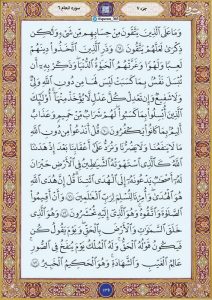 جزء ٧
سورة الانعام ٦
وَمَا عَلَى الَّذِينَ يَتَّقُونَ مِنْ حِسَابِهِمْ مِنْ شَيْءٍ وَلَٰكِنْ
ذِكْرَىٰ لَعَلَّهُمْ يَتَّقُونَ ﴿٦٩﴾ وَذَرِ الَّذِينَ اتَّخَذُوا دِينَهُمْ
لَعِبًا وَلَهْوًا وَغَرَّتْهُمُ الْحَيَاةُ الدُّنْيَا وَذَكِّرْ بِهِ أَنْ
تُبْسَلَ نَفْسٌ بِمَا كَسَبَتْ لَيْسَ لَهَا مِنْ دُونِ اللَّهِ وَلِيٌّ
وَلَا شَفِيعٌ وَإِنْ تَعْدِلْ كُلَّ عَدْلٍ لَا يُؤْخَذْ مِنْهَا أُولَٰئِكَ
الَّذِينَ أُبْسِلُوا بِمَا كَسَبُوا لَهُمْ شَرَابٌ مِنْ حَمِيمٍ وَعَذَابٌ
أَلِيمٌ بِمَا كَانُوا يَكْفُرُونَ ﴿٧٠﴾ قُلْ أَنَدْعُو مِنْ دُونِ اللَّهِ
مَا لَا يَنْفَعُنَا وَلَا يَضُرُّنَا وَنُرَدُّ عَلَىٰ أَعْقَابِنَا بَعْدَ إِذْ هَدَانَا
اللَّهُ كَالَّذِي اسْتَهْوَتْهُ الشَّيَاطِينُ فِي الْأَرْضِ حَيْرَانَ
لَهُ أَصْحَابٌ يَدْعُونَهُ إِلَى الْهُدَى ائْتِنَا قُلْ إِنَّ هُدَى اللَّهِ
هُوَ الْهُدَىٰ وَأُمِرْنَا لِنُسْلِمَ لِرَبِّ الْعَالَمِينَ ﴿٧١﴾ وَأَنْ أَقِيمُوا
الصَّلَاةَ وَاتَّقُوهُ وَهُوَ الَّذِي إِلَيْهِ تُحْشَرُونَ ﴿٧٢﴾ وَهُوَ الَّذِي
خَلَقَ السَّمَاوَاتِ وَالْأَرْضَ بِالْحَقِّ وَيَوْمَ يَقُولُ كُنْ
فَيَكُونُ قَوْلُهُ الْحَقُّ وَلَهُ الْمُلْكُ يَوْمَ يُنْفَخُ فِي الصُّورِ
عَالِمُ الْغَيْبِ وَالشَّهَادَةِ وَهُوَ الْحَكِيمُ الْخَبِيرُ ﴿٧٣﴾
١٣٦